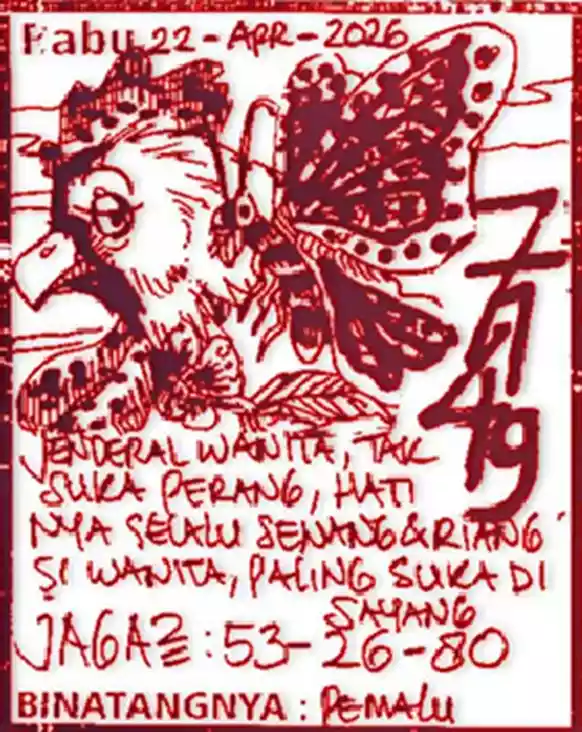 Rabu 22-APR-2026
JENDERAL WANITA, TAK
SUKA PERANG, HATI
NYA SELALU SENANG & RIANG
SI WANITA, PALING SUKA DI
SAYANG
JAGA2 : 53-26-80
BINATANGNYA : PEMALU